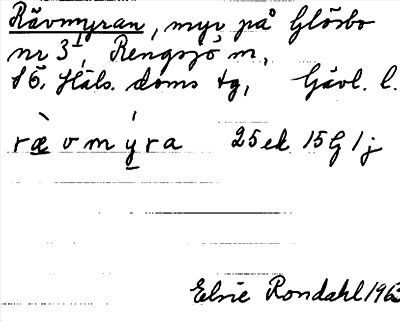 Rävmyran, myr på Glösbo
nr 3¹, Rengsjö sn,
SÖ. Häls. doms tg, Gävl. l.
rævmyra 25ek 15G 1j
Elsie Rondahl 1963